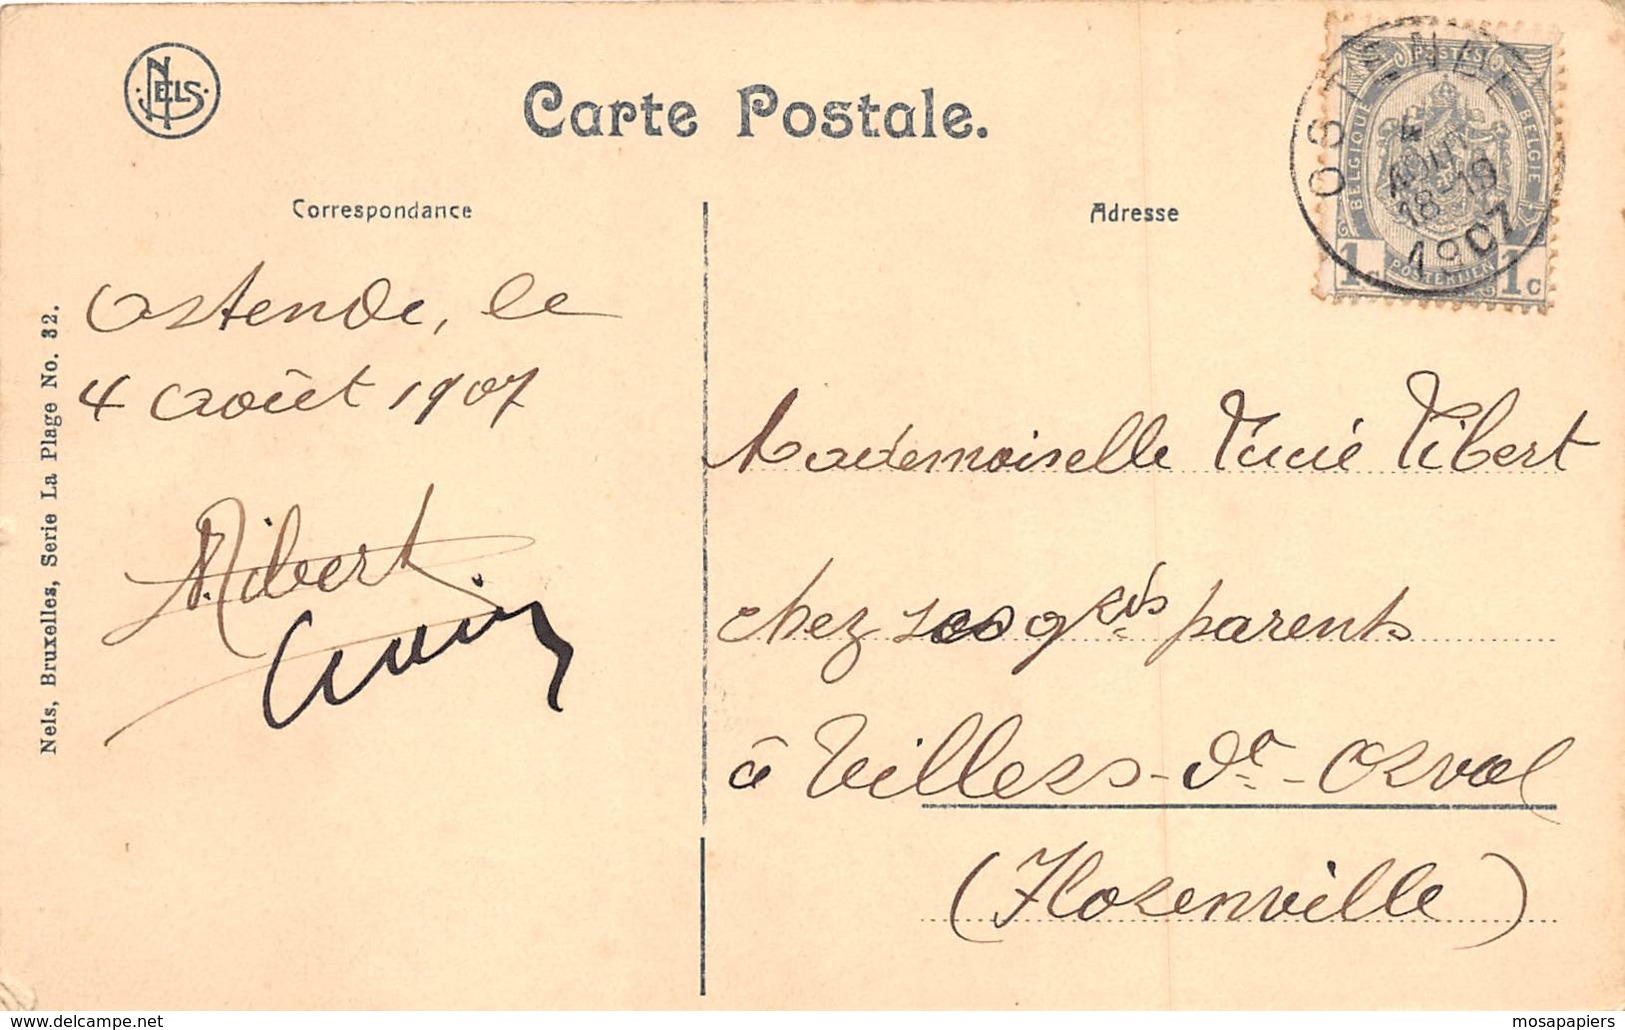 NELS
Carte Postale.
Correspondance
Adresse
OSTENDE
4
AOUT
18-19
1907
POSTES
BELGIQUE
BELGIE
POSTERIJEN
1c 1c
Ostende, le
4 août 1907
Nels, Bruxelles, Serie La Plage No. 32.
Mademoiselle Tibert
chez ses gds parents
à Villers-dt-Orval
(Florenville)
www.delcampe.net
mosapapiers